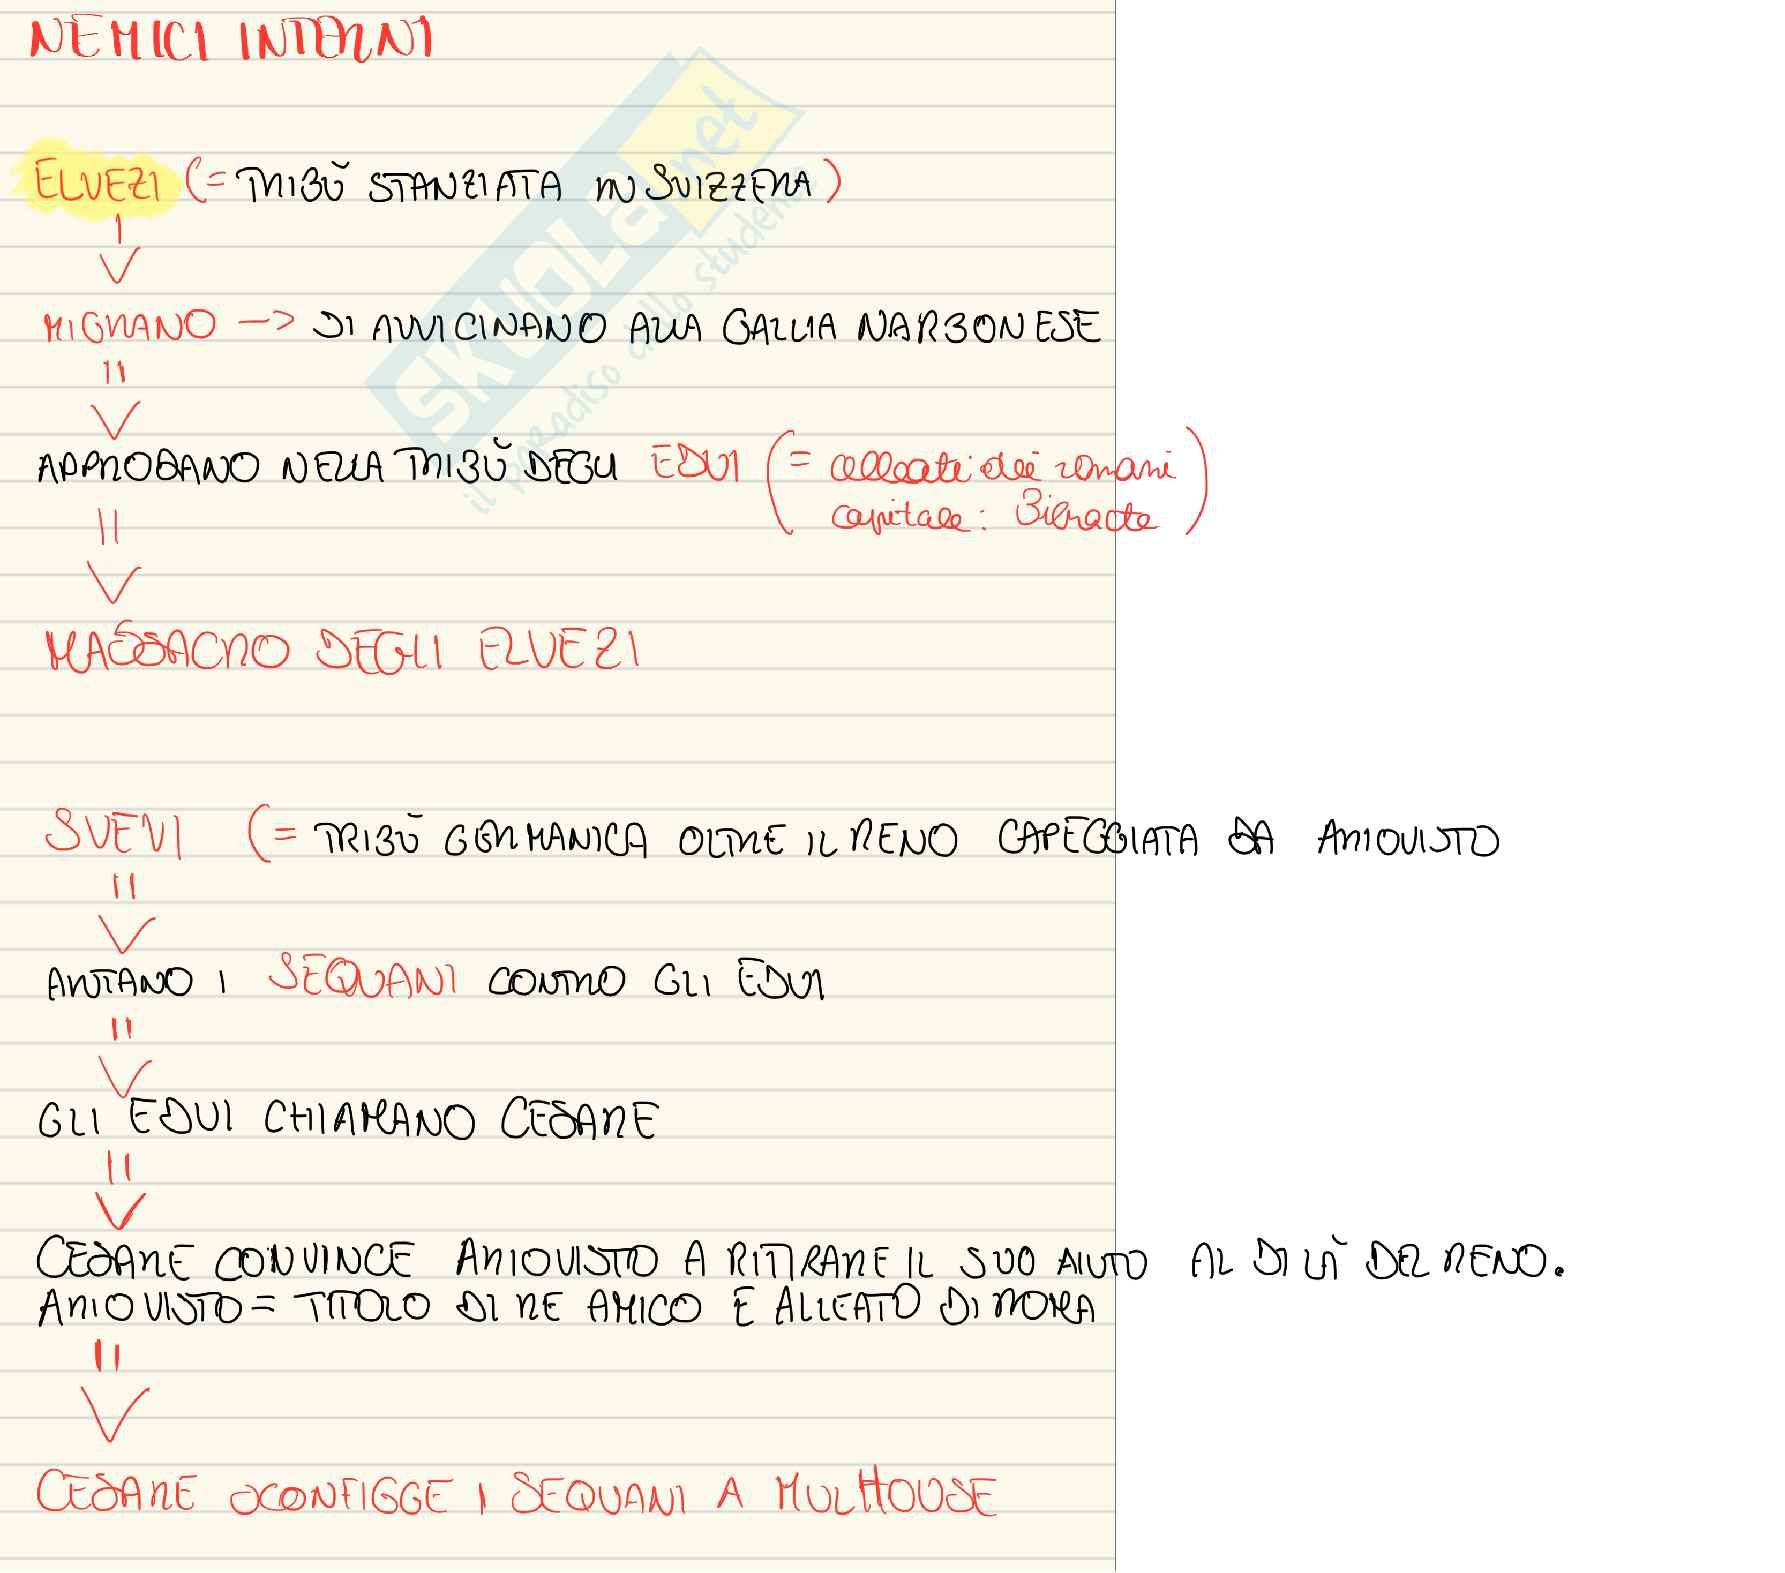 NEMICI INTERNI
ELVEZI (= TRIBÙ STANZIATA IN SVIZZERA)
MIGRANO -> SI AVVICINANO ALLA GALLIA NARBONESE
APPRODANO NELLA TRIBÙ DEGLI EDUI (= alleati dei romani
capitale: Bibracte)
MASSACRO DEGLI ELVEZI
SVEVI (= TRIBÙ GERMANICA OLTRE IL RENO CAPEGGIATA DA ARIOVISTO
AIUTANO I SEQUANI CONTRO GLI EDUI
GLI EDUI CHIAMANO CESARE
CESARE CONVINCE ARIOVISTO A RITIRARE IL SUO AIUTO AL DI LÀ DEL RENO.
ARIOVISTO = TITOLO DI RE AMICO E ALLEATO DI ROMA
CESARE SCONFIGGE I SEQUANI A MULHOUSE
SKUOLA.net
il paradiso dello studente